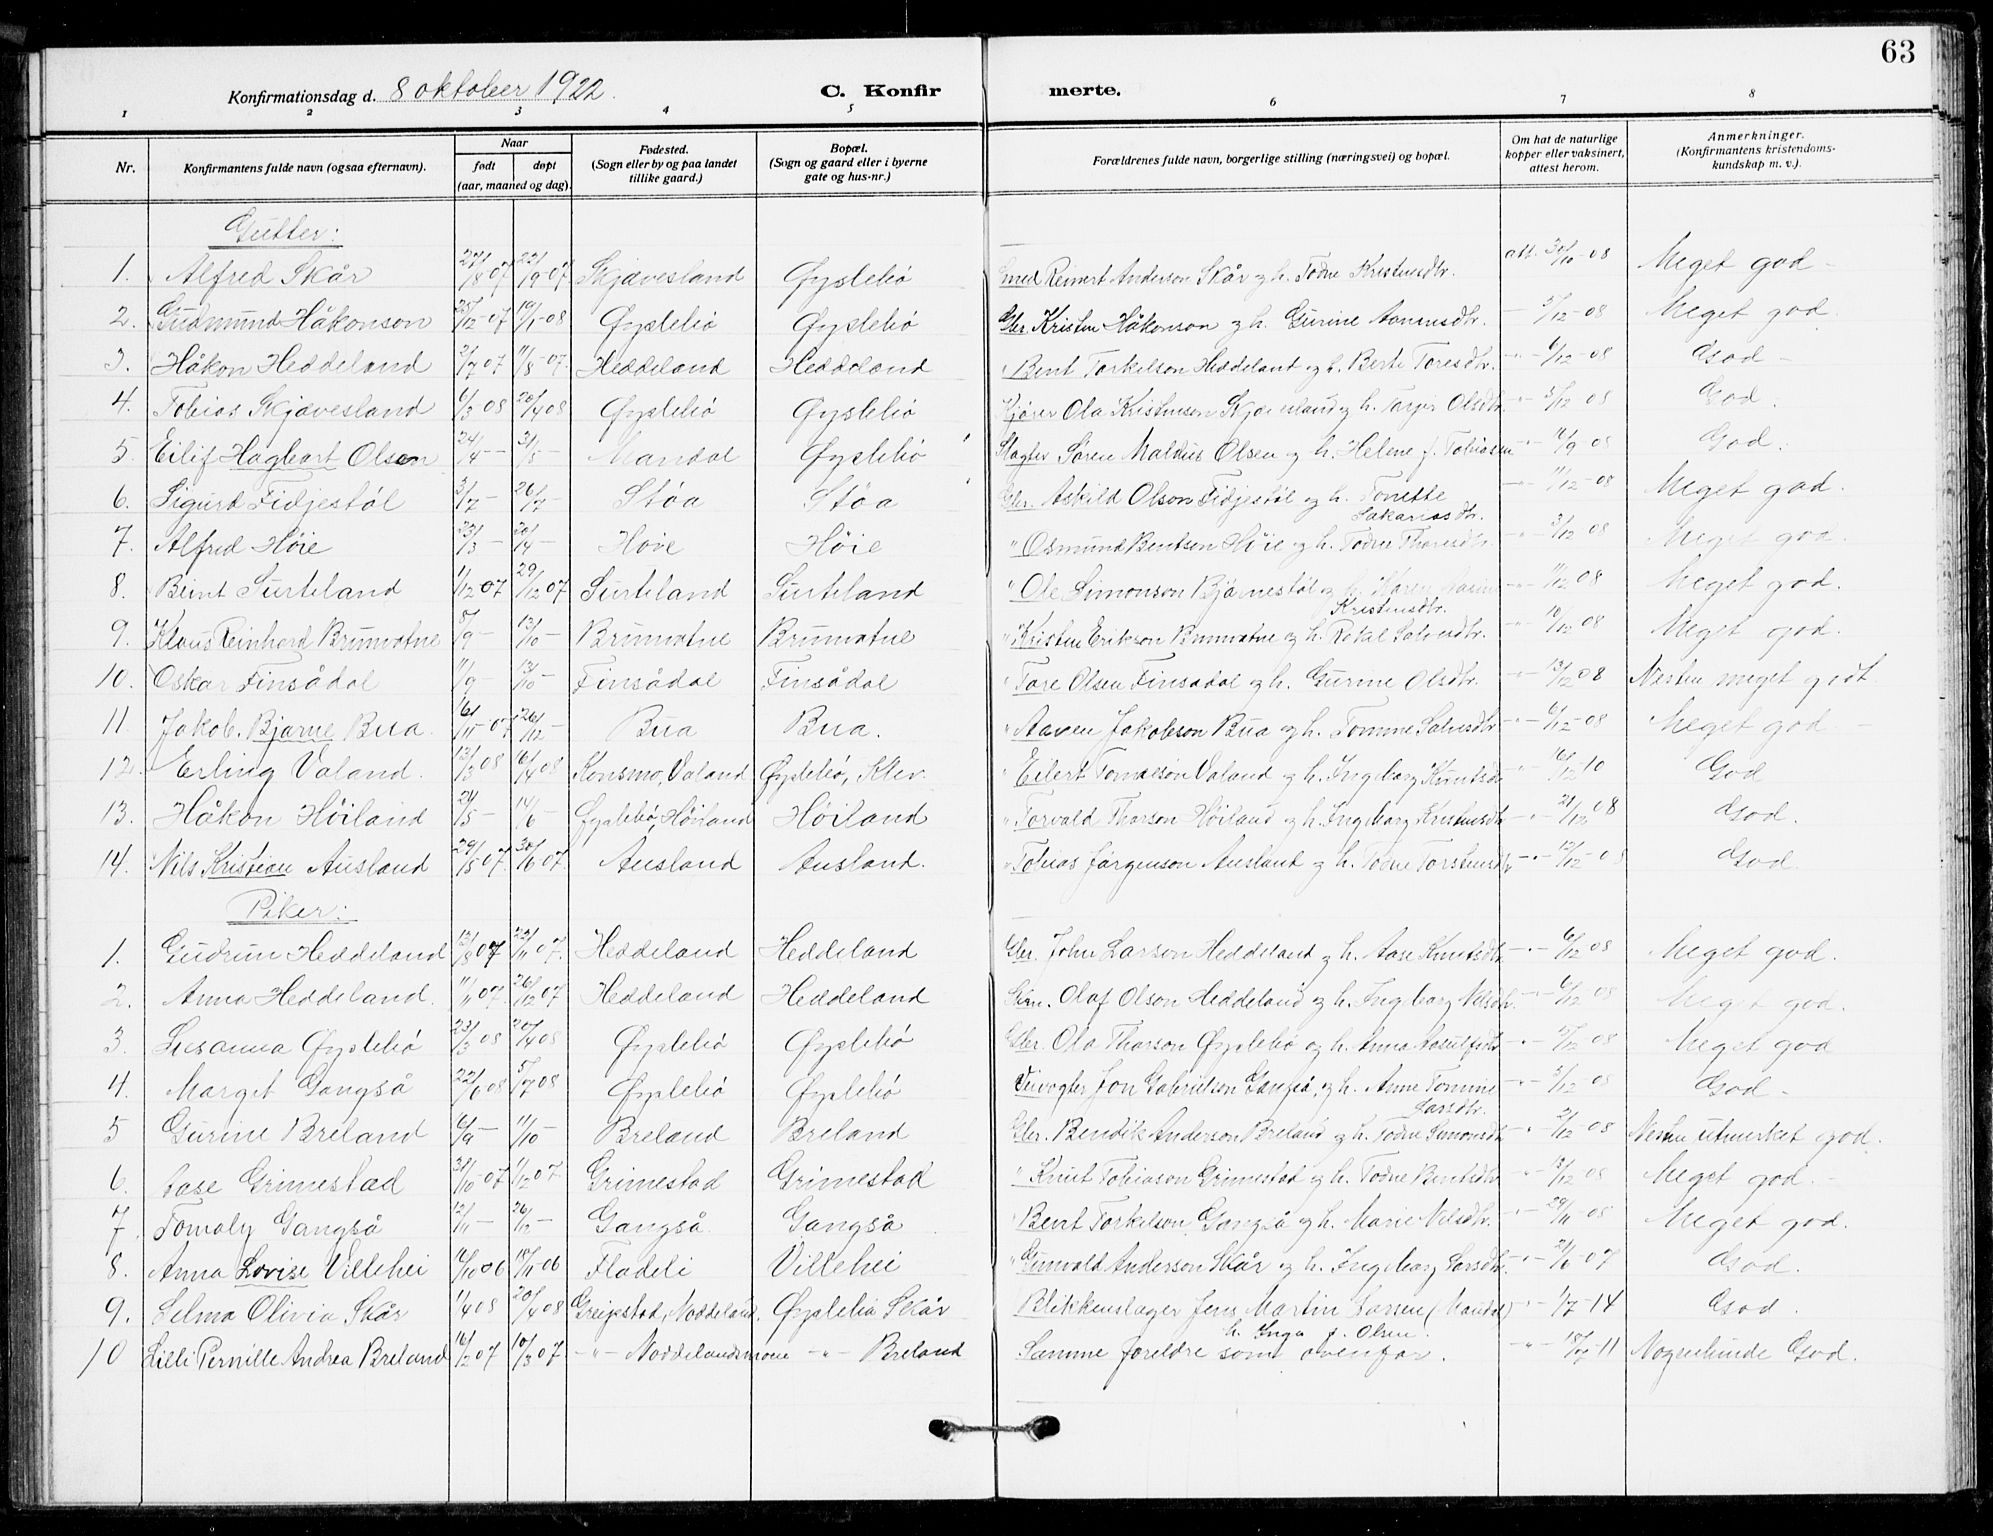 63
Konfirmationsdag d. 8 oktober 1922.
C. Konfirmerte.
1 2 3 4 5 6 7 8
Nr.
Konfirmantens fulde navn (ogsaa efternavn).
Naar
født
døpt
(aar, maaned og dag).
Fødested.
(Sogn eller by og paa landet
tillike gaard.)
Bopæl.
(Sogn og gaard eller i byerne
gate og hus-nr.)
Forældrenes fulde navn, borgerlige stilling (næringsvei) og bopæl.
Om hat de naturlige
kopper eller vaksinert,
attest herom.
Anmerkninger.
(Konfirmantens kristendoms-
kundskap m. v.).
Gutter:
1. Alfred Skår 27/8 07 22/9 07 Skjævesland Øyslebö Smed Reinert Anderson Skår og h. Todne Kristensdtr. att. 30/10-08 Meget god
2. Gudmund Håkonson 25/12-07 19/1-08 Øyslebö Øyslebö Gbr. Kristen Håkonson og h. Gurine Aanensdtr. 5/12-08 Meget god
3. Håkon Heddeland 2/7 07 11/8-07 Heddeland Heddeland " Bent Torkelson Heddeland og h. Berte Toresdtr. 6/12-08 God
4. Tobias Skjævesland 6/3 08 20/4 08 Øyslebö Øyslebö Ola Kristensen Skjævesland og h. Targer Olsdtr. 5/12 08 God
5. Eilif Hagbart Olsen 24/4 31/5 Mandal Øyslebö Slagter Sören Maldus Olsen og h. Helene f. Tobiasen 4/9 08 God.
6. Sigurd Fidjestöl 3/7 26/7 Stöa Stöa Gbr. Askild Olson Fidjestöl og h. Tonette
Sakariasdtr. 11/12-08 Meget god.
7. Alfred Höie 23/3 20/4 Höie Höie " Osmund Bentsen Höie og h. Todne Tharesdtr. 3/12 08 Meget god.
8. Bent Surteland 1/12 07 29/12 07 Surteland Surteland " Ole Simonson Bjørnestöl og h. Karen
Kristensdtr. 11/12 08 Meget god.
9. Klaus Reinhard Brunvatne 8/9 13/10 Brunvatne Brunvatne " Kristen Erikson Brunvatne og h. Rakel Salvesdtr. 10/12 08 Meget god.
10. Oskar Finsådal 11/9 13/10 Finsådal Finsådal " Tore Olsen Finsådal og h. Gurine Olsdtr. 13/12 08 Nesten meget godt.
11. Jakob Bjarne Bua 16/11-07 26/12 Bua Bua. " Aanen Jakobson Bua og h. Tomine Salvesdtr. 6/12-08 Meget god
12. Erling Valand. 13/3 08 16/4 08 Konsmo, Valand Øyslebö, Klev. " Eilert Tomasson Valand og h. Ingeborg Knutsdtr. 16/12 10 God
13. Håkon Höiland 24/5 14/6 Øyslebö, Höiland Höiland " Torvald Tharson Höiland og h. Ingeborg Kristensdtr. 21/12 08 God.
14. Nils Kristian Ausland 29/5 07. 30/6 07. Ausland Ausland. " Tobias Jörgenson Ausland og h. Todne Torstensdtr. 12/12-08 God.
Piker:
1. Gudrun Heddeland 13/8 07 22/11 07. Heddeland Heddeland Gbr. John Larson Heddeland og h. Aase Knutsdtr. 6/12 08 Meget god.
2. Anna Heddeland. 11/11 07. 26/12 07 Heddeland Heddeland Olaf Olson Heddeland og h. Ingeborg Nilsdtr. 6/12 08 Meget god.
3. Susanna Øyslebö 23/3 08 20/4 08 Øyslebö Øyslebö Gbr. Ola Tharson Øyslebö og h. Anna Aasulfsdtr. 5/12 08 Meget god
4. Marget Gangså 22/6 08 5/7 08 Øyslebö Øyslebö Veivogter Jon Gabrielson Gangså og h. Anne Tomine
Larsdtr. 5/12 08 God
5 Gurine Breland 6/9 11/10 Breland Breland Gbr. Bendik Anderson Breland og h. Todne Simonsdtr. 2/12 08 Nesten utmerket god.
6. Aase Grimestad 31/10-07 1/12 07. Grimestad Grimestad " Knut Tobiason Grimestad og h. Todne Bentsdtr. 18/12 08 Meget god.
7. Tomaly Gangså 12/11 26/12 Gangså. Gangså " Bent Torkelson Gangså og h. Marie Nilsdtr. 29/11-08 Meget god.
8. Anna Lovise Villehei 16/10 06 18/11-06 Fladeli Villehei " Gunvald Anderson Skår og h. Ingeborg Larsdtr. 07 God.
9. Selma Olivia Skår 1/4 08 20/4 08 Greipstad, Noddeland. Øyslebö Skår Blikkenslager Jens Martin Larsen (Mandal)
h. Inga f. Olsen. 1/7-14 God.
10 Lilli Pernille Andrea Breland 16/2 07 10/3 07 -"- Noddelandsmone -"- Breland Samme foreldre som ovenfor. 18/7-11 Nogenlunde God.